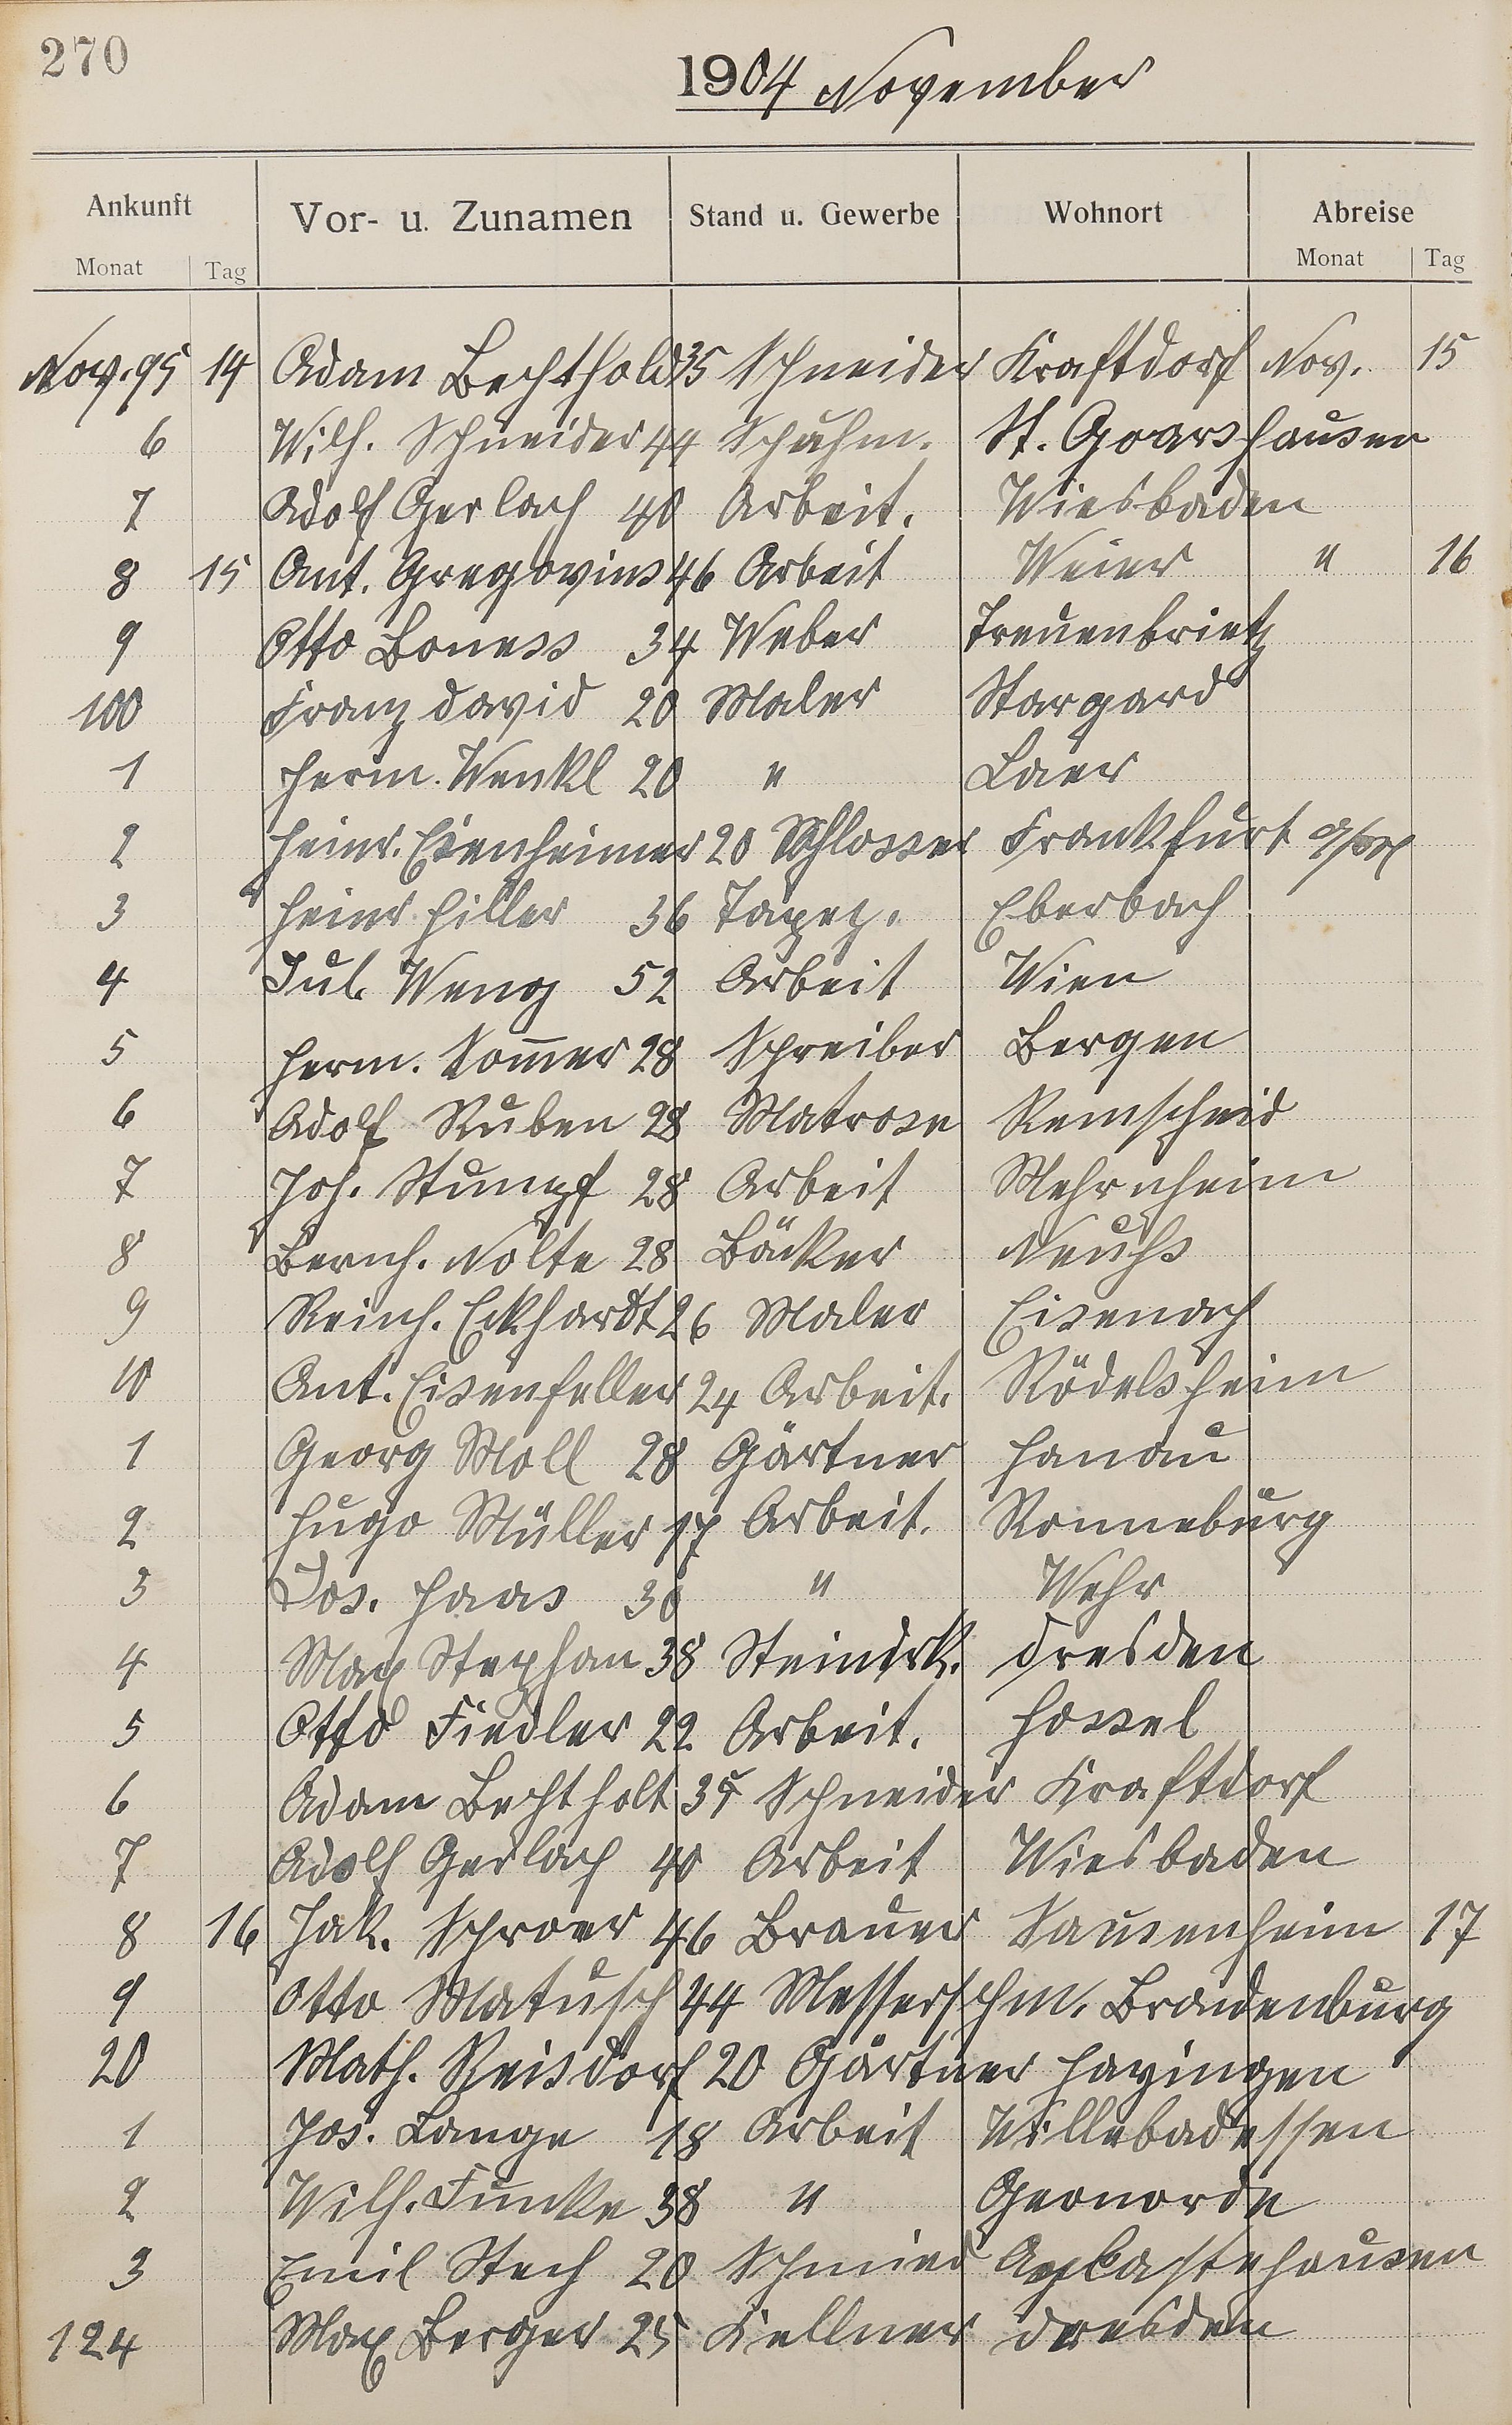 270
1904 November
Ankunft Vor- u. Zunamen Stand u. Gewerbe Wohnort Abreise
Monat Tag Monat Tag
Nov. 95 14 Adam Bechthold 35 Schneider Kraftdorf Nov. 15
6 Wilh. Schneider 44 Schuhm. St. Goarshausen
7 Adolf Gerlach 40 Arbeit. Wiesbaden
8 15 Ant. Gregovius 46 Arbeit Weier " 16
9 Otto Boness 34 Weber Treuenbrietz
100 Franz David 20 Maler Stargard
1 Herm. Wenkl 20 " Laer
2 Heinr. 20 Schlosser Frankfurt
3 Heinr Hiller 36 Tapez. Eberbach
4 Jul. Weng 52 Arbeit Wien
5 Herm. Som̄er 28 Schreiber Bergen
6 Adolf Ruben 28 Matrose Remscheid
7 Joh. Stumpf 28 Arbeit
8 Bernh. Nolte 28 Bäcker Neuhs
9 Reinh. Eckhardt 26 Maler Eisenach
10 Ant. Eisenheller 24 Arbeit. Rödelsheim
1 Georg Moll 28 Gärtner Hanau
2 Hugo Müller 17 Arbeit. Ronneburg
3 Jos. Haas 30 " Wehr
4 Max Stephan 38 Steindrk. Dresden
5 Otto Fiedler 22 Arbeit. Hossel
6 Adam Bechtholt 35 Schneider Kraftdorf
7 Adolf Gerlach 40 Arbeit Wiesbaden
8 16 Jak. Schroer 46 Brauer Sausenheim 17
9 Otto Matusch 44 Messerschm. Brandenburg
20 Math. Reisdorf 20 Gärtner Hayingen
1 Jos. Lange 18 Arbeit Willebadessen
2 Wilh. Funke 38 "
3 Emil Stech 20 Schmied
124 Max Berger 25 Kellner Dresden